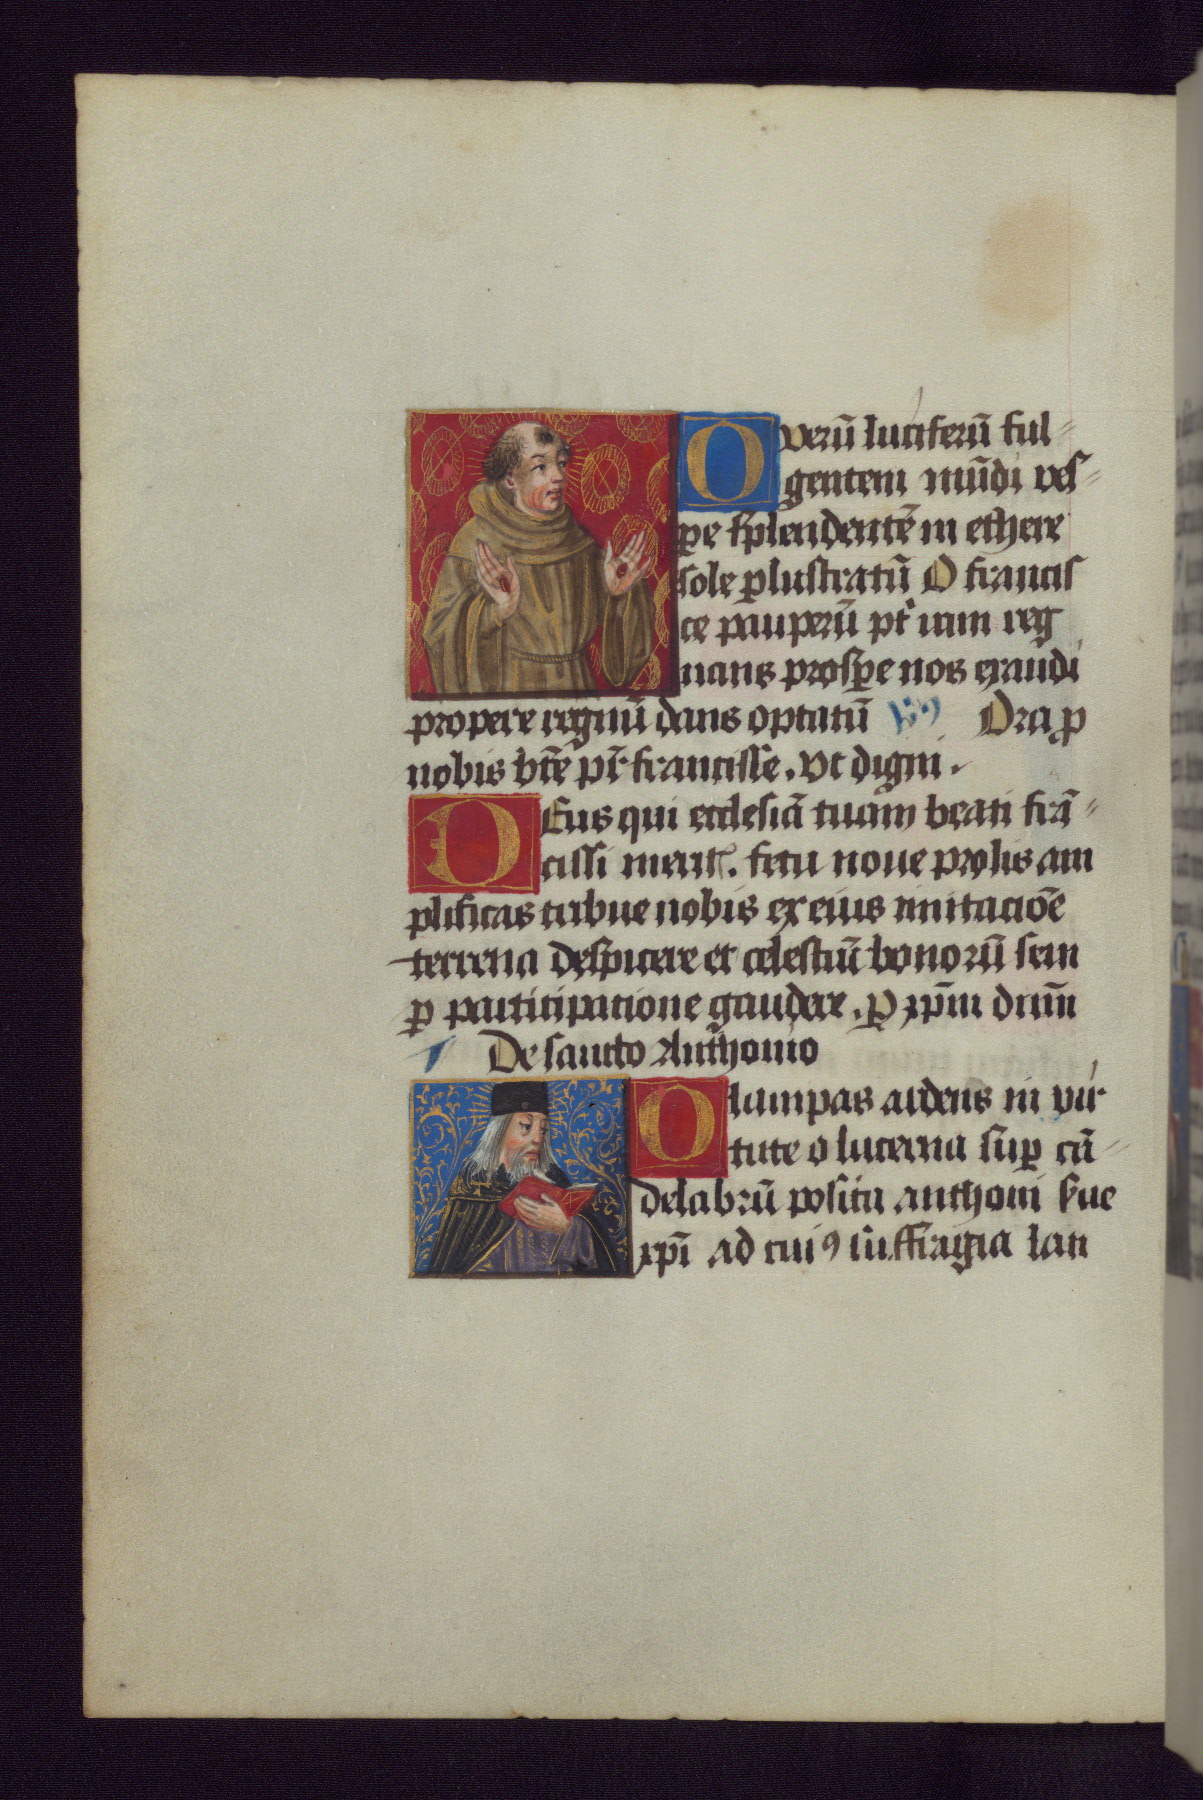 O verū luciferū ful-
gentem mūdi ves-
pe splendentē in ethere
sole plustratū O francis
ce pauperū pr̄ iam reg
nans prospe nos exaudi
propere regnū dans optatū Ora p
nobis bt̄e pr̄ francisse. ut digni.
DEus qui ecclesiā tuam beati frā-
cissi merit. fetu noue prolis am
plificas tribue nobis ex eius imitaciōe
terrena despicere et celestiū bonorū sem
p participatione gaudere. p xp̄m dnm̄
De sancto Anthonio
O lampas ardens in vir
tute o lucerna sup cā-
delabrū posita anthoni sue
xpī ad cuiꝯ suffragia lan